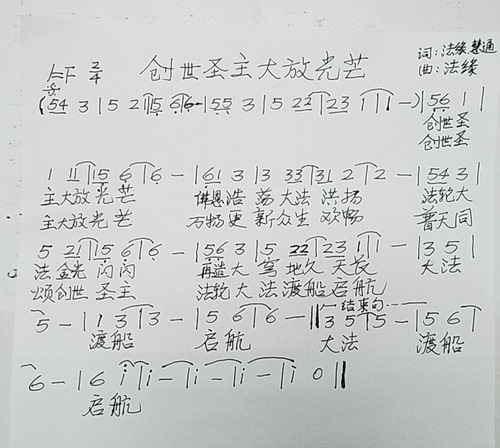 创世圣主大放光芒
词:法缘,慧通
曲:法缘
1=F 2/4
(54 3 | 5 2 | 15 6 | 6 - | 55 3 | 5 22 | 23 1 | 1 - ) | 56 1 |
创世圣
创世圣
1 11 | 15 6 | 6 - | 61 3 | 3 33 | 31 2 | 2 - | 54 3 |
主大放光芒 佛恩浩荡大法洪扬 法轮大
主大放光芒 万物更新众生欢畅 普天同
5 21 | 15 6 | 6 - | 56 3 | 5 22 | 23 1 | 1 - | 3 5 |
法金光闪闪 再造大穹地久天长 大法
颂创世圣主 法轮大法渡船启航
结束句
5 - | 1 3 | 3 - | 5 6 | 6 - || 3 5 | 5 - | 5 6 |
渡船 启航 大法 渡船
6 - | 6 i | i - | i - | i - | i 0 ||
启航